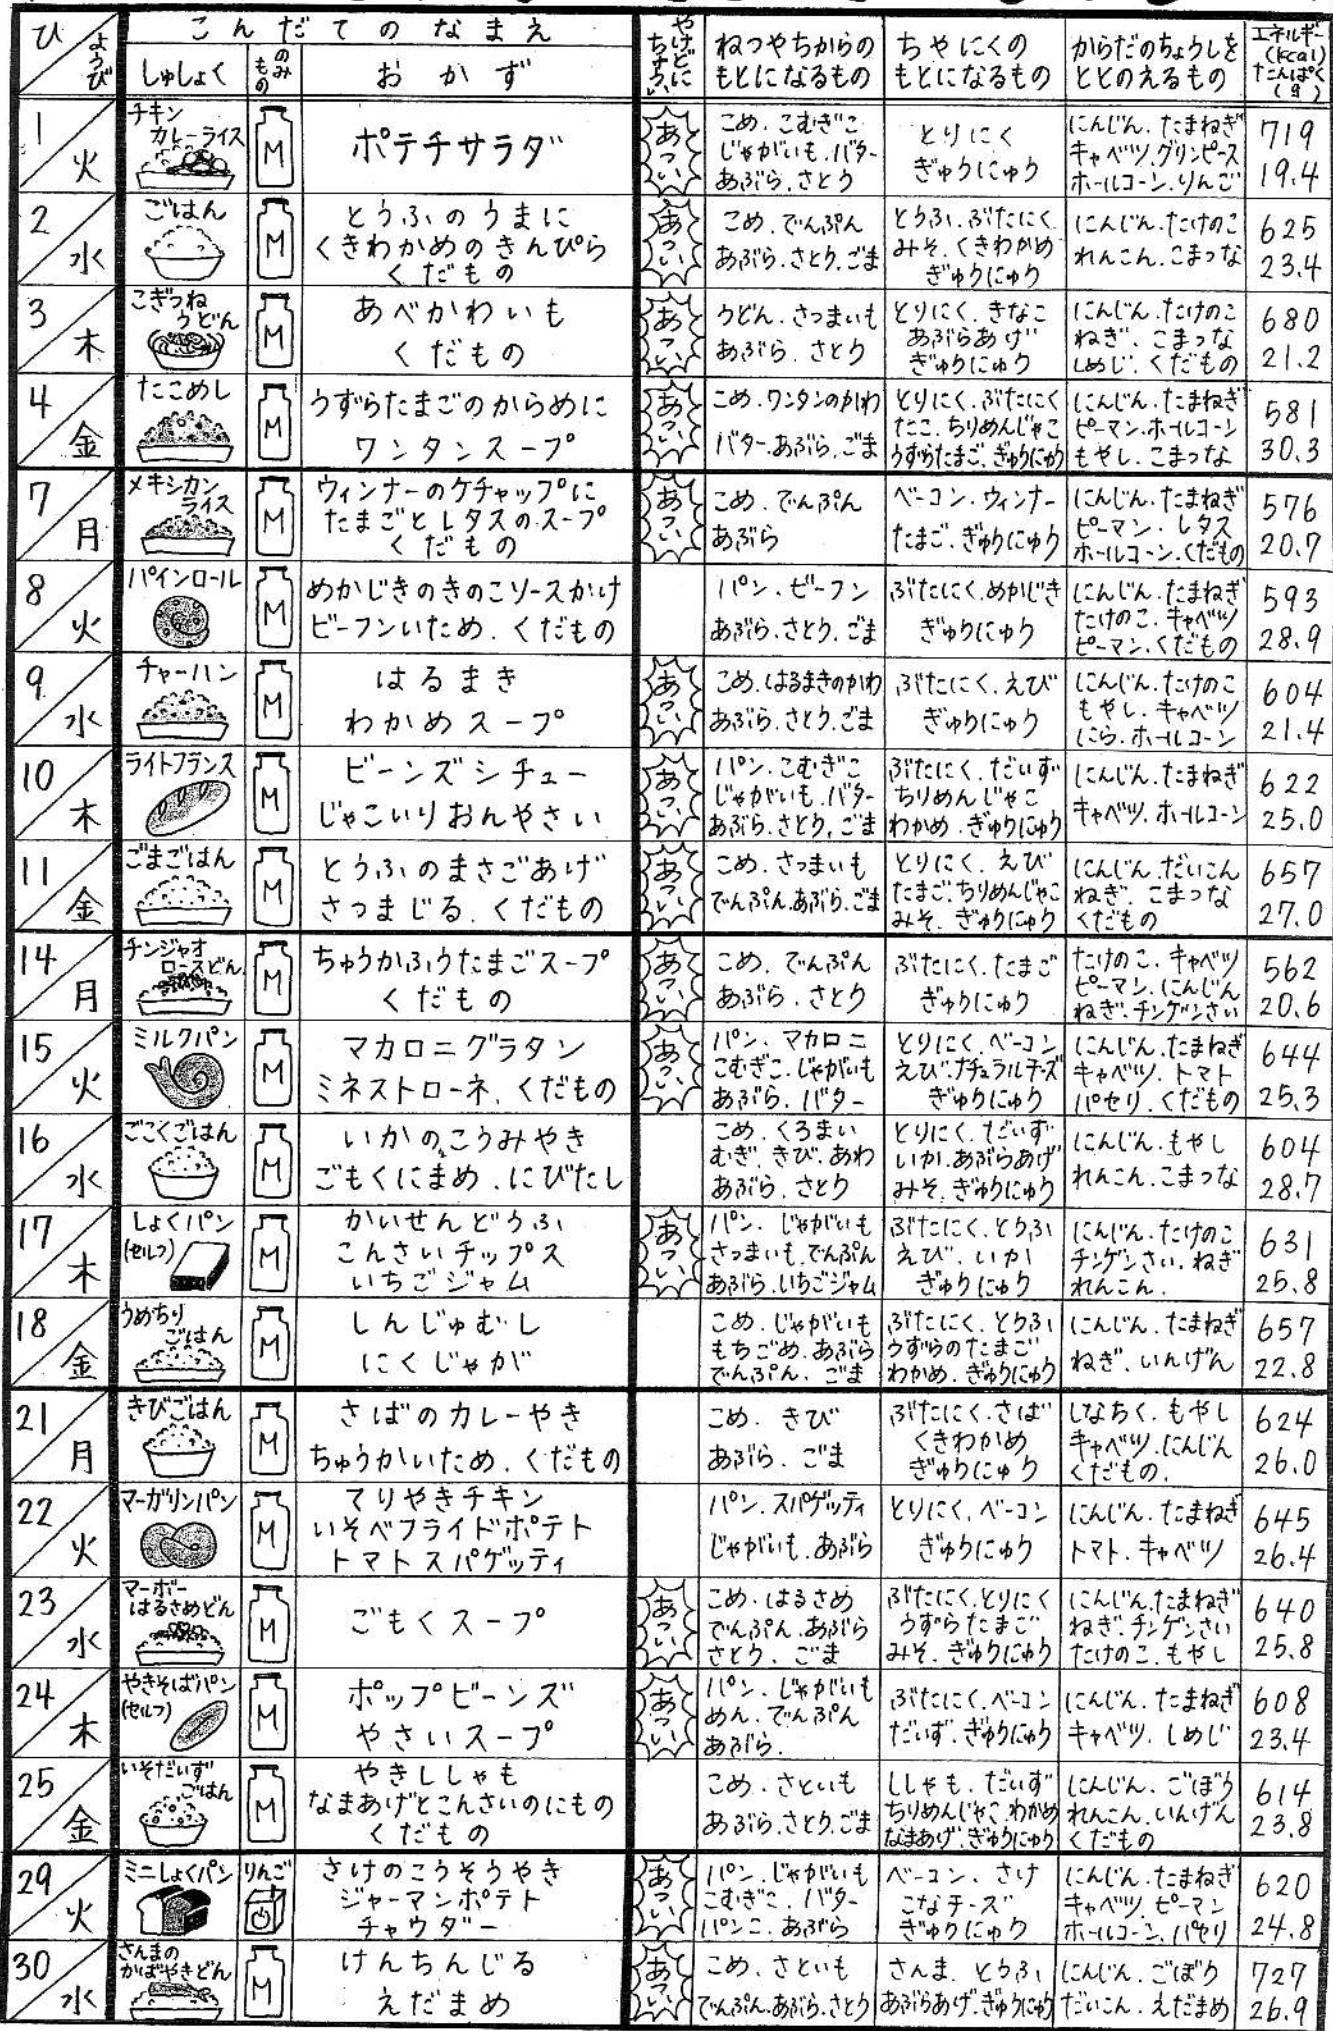 ひ
ようび
こんだてのなまえ
しゅしょく
のみもの
おかず
やけどにちゅうい
ねつやちからの
もとになるもの
ちやにくの
もとになるもの
からだのちょうしを
ととのえるもの
エネルギー
(kcal)
たんぱく
(g)
1
火
チキン
カレーライス
M
ポテチサラダ
あつい
こめ.こむぎこ
じゃがいも.バター
あぶら.さとう
とりにく
ぎゅうにゅう
にんじん.たまねぎ
キャベツ.グリンピース
ホールコーン.りんご
719
19.4
2
水
ごはん
M
とうふのうまに
くきわかめのきんぴら
くだもの
あつい
こめ.でんぷん
あぶら.さとう.ごま
とうふ.ぶたにく
みそ.くきわかめ
ぎゅうにゅう
にんじん.たけのこ
れんこん.こまつな
625
23.4
3
木
こぎつね
うどん
M
あべかわいも
くだもの
あつい
うどん.さつまいも
あぶら.さとう
とりにく.きなこ
あぶらあげ
ぎゅうにゅう
にんじん.たけのこ
ねぎ.こまつな
しめじ.くだもの
680
21.2
4
金
たこめし
M
うずらたまごのからめに
ワンタンスープ
あつい
こめ.ワンタンのかわ
バター.あぶら.ごま
とりにく.ぶたにく
たこ.ちりめんじゃこ
うずらたまご.ぎゅうにゅう
にんじん.たまねぎ
ピーマン.ホールコーン
もやし.こまつな
581
30.3
7
月
メキシカン
ライス
M
ウィンナーのケチャップに
たまごとレタスのスープ
くだもの
あつい
こめ.でんぷん
あぶら
ベーコン.ウィンナー
たまご.ぎゅうにゅう
にんじん.たまねぎ
ピーマン.レタス
ホールコーン.くだもの
576
20.7
8
火
パインロール
M
めかじきのきのこソースかけ
ビーフンいため.くだもの
パン.ビーフン
あぶら.さとう.ごま
ぶたにく.めかじき
ぎゅうにゅう
にんじん.たまねぎ
たけのこ.キャベツ
ピーマン.くだもの
593
28.9
9
水
チャーハン
M
はるまき
わかめスープ
あつい
こめ.はるまきのかわ
あぶら.さとう.ごま
ぶたにく.えび
ぎゅうにゅう
にんじん.たけのこ
もやし.キャベツ
にら.ホールコーン
604
21.4
10
木
ライトフランス
M
ビーンズシチュー
じゃこいりおんやさい
あつい
パン.こむぎこ
じゃがいも.バター
あぶら.さとう.ごま
ぶたにく.だいず
ちりめんじゃこ
わかめ.ぎゅうにゅう
にんじん.たまねぎ
キャベツ.ホールコーン
622
25.0
11
金
ごまごはん
M
とうふのまさごあげ
さつまじる.くだもの
あつい
こめ.さつまいも
でんぷん.あぶら.ごま
とりにく.えび
たまご.ちりめんじゃこ
みそ.ぎゅうにゅう
にんじん.だいこん
ねぎ.こまつな
くだもの
657
27.0
14
月
チンジャオ
ロースどん
M
ちゅうかふうたまごスープ
くだもの
あつい
こめ.でんぷん
あぶら.さとう
ぶたにく.たまご
ぎゅうにゅう
たけのこ.キャベツ
ピーマン.にんじん
ねぎ.チンゲンさい
562
20.6
15
火
ミルクパン
M
マカロニグラタン
ミネストローネ.くだもの
あつい
パン.マカロニ
こむぎこ.じゃがいも
あぶら.バター
とりにく.ベーコン
えび.ナチュラルチーズ
ぎゅうにゅう
にんじん.たまねぎ
キャベツ.トマト
パセリ.くだもの
644
25.3
16
水
ごこくごはん
M
いかのこうみやき
ごもくにまめ.にびたし
こめ.くろまい
むぎ.きび.あわ
あぶら.さとう
とりにく.だいず
いか.あぶらあげ
みそ.ぎゅうにゅう
にんじん.もやし
れんこん.こまつな
604
28.7
17
木
しょくパン
(セルフ)
M
かいせんどうふ
こんさいチップス
いちごジャム
あつい
パン.じゃがいも
さつまいも.でんぷん
あぶら.いちごジャム
ぶたにく.とうふ
えび.いか
ぎゅうにゅう
にんじん.たけのこ
チンゲンさい.ねぎ
れんこん.
631
25.8
18
金
うめちり
ごはん
M
しんじゅむし
にくじゃが
こめ.じゃがいも
もちごめ.あぶら
でんぷん.ごま
ぶたにく.とうふ
うずらのたまご
わかめ.ぎゅうにゅう
にんじん.たまねぎ
ねぎ.いんげん
657
22.8
21
月
きびごはん
M
さばのカレーやき
ちゅうかいため.くだもの
こめ.きび
あぶら.ごま
ぶたにく.さば
くきわかめ
ぎゅうにゅう
しなちく.もやし
キャベツ.にんじん
くだもの.
624
26.0
22
火
マーガリンパン
M
てりやきチキン
いそべフライドポテト
トマトスパゲッティ
パン.スパゲッティ
じゃがいも.あぶら
とりにく.ベーコン
ぎゅうにゅう
にんじん.たまねぎ
トマト.キャベツ
645
26.4
23
水
マーボー
はるさめどん
M
ごもくスープ
あつい
こめ.はるさめ
でんぷん.あぶら
さとう.ごま
ぶたにく.とりにく
うずらたまご
みそ.ぎゅうにゅう
にんじん.たまねぎ
ねぎ.チンゲンさい
たけのこ.もやし
640
25.8
24
木
やきそばパン
(セルフ)
M
ポップビーンズ
やさいスープ
あつい
パン.じゃがいも
めん.でんぷん
あぶら.
ぶたにく.ベーコン
だいず.ぎゅうにゅう
にんじん.たまねぎ
キャベツ.しめじ
608
23.4
25
金
いそだいず
ごはん
M
やきししゃも
なまあげとこんさいのにもの
くだもの
こめ.さといも
あぶら.さとう.ごま
ししゃも.だいず
ちりめんじゃこ.わかめ
なまあげ.ぎゅうにゅう
にんじん.ごぼう
れんこん.いんげん
くだもの
614
23.8
29
火
ミニしょくパン
りんご
さけのこうそうやき
ジャーマンポテト
チャウダー
あつい
パン.じゃがいも
こむぎこ.バター
パンこ.あぶら
ベーコン.さけ
こなチーズ
ぎゅうにゅう
にんじん.たまねぎ
キャベツ.ピーマン
ホールコーン.パセリ
620
24.8
30
水
さんまの
かばやきどん
M
けんちんじる
えだまめ
あつい
こめ.さといも
でんぷん.あぶら.さとう
さんま.とうふ
あぶらあげ.ぎゅうにゅう
にんじん.ごぼう
だいこん.えだまめ
727
26.9